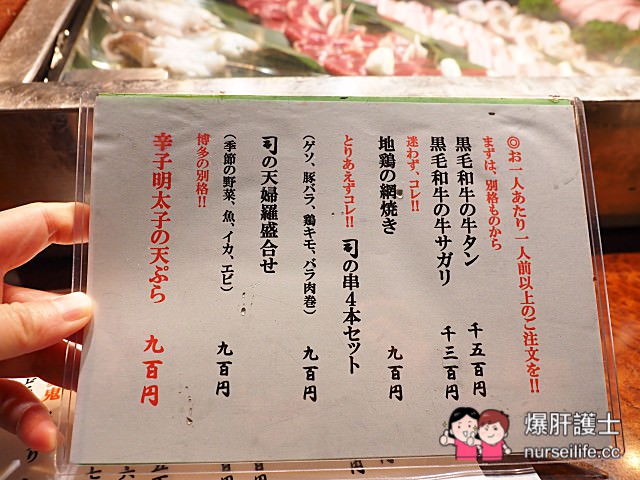 ◎お一人あたり一人前以上のご注文を!!
まずは、別格ものから
黒毛和牛の牛タン 千五百円
黒毛和牛の牛サガリ 千三百円
迷わず、コレ!!
地鶏の網焼き 九百円
とりあえずコレ!! 司の串4本セット
(ゲソ、豚バラ、鶏キモ、バラ肉巻) 九百円
司の天婦羅盛合せ
(季節の野菜、魚、イカ、エビ) 九百円
博多の別格!!
辛子明太子の天ぷら 九百円
爆肝護士
nurseilife.cc